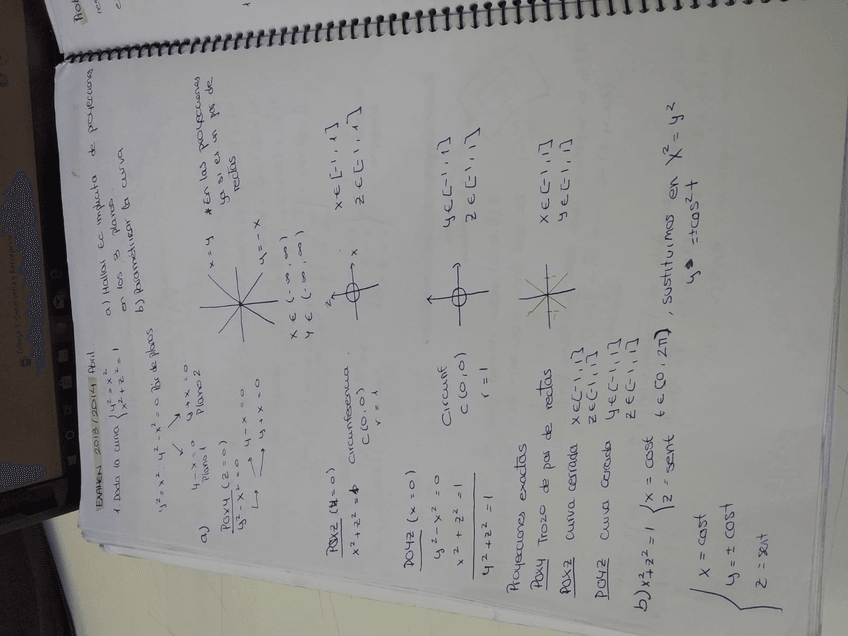 EXAMEN 2013/2014 Abril
1. Dada la curva { y² = x²
x² + z² = 1
a) Hallar Ec implícita de proyecciones
en los 3 planos.
b) Parametrizar la curva
y² = x² · y² - x² = 0 Par de planos
a) y - x = 0
Plano 1
y + x = 0
Plano 2
POXY (z = 0)
y² - x² = 0
y - x = 0
y + x = 0
x = y
y = -x
* En las proyecciones
ya si es un par de
rectas
x ∈ (-∞, ∞)
y ∈ (-∞, ∞)
POXZ (y = 0)
x² + z² = 1
circunferencia.
C(0,0)
r = 1
z
x
x ∈ [-1, 1]
z ∈ [-1, 1]
POYZ (x = 0)
y² - x² = 0
x² + z² = 1
y² + z² = 1
Circunf
C(0,0)
r = 1
y ∈ [-1, 1]
z ∈ [-1, 1]
Proyecciones exactas
POXY Trozo de par de rectas
x ∈ [-1, 1]
y ∈ [-1, 1]
POXZ curva cerrada x ∈ [-1, 1]
z ∈ [-1, 1]
POYZ curva cerrada y ∈ [-1, 1]
z ∈ [-1, 1]
b) x² + z² = 1 { x = cost
z = sent
t ∈ [0, 2π), sustituimos en x² = y²
y = ±cos²t
{ x = cost
y = ± cost
z = sent